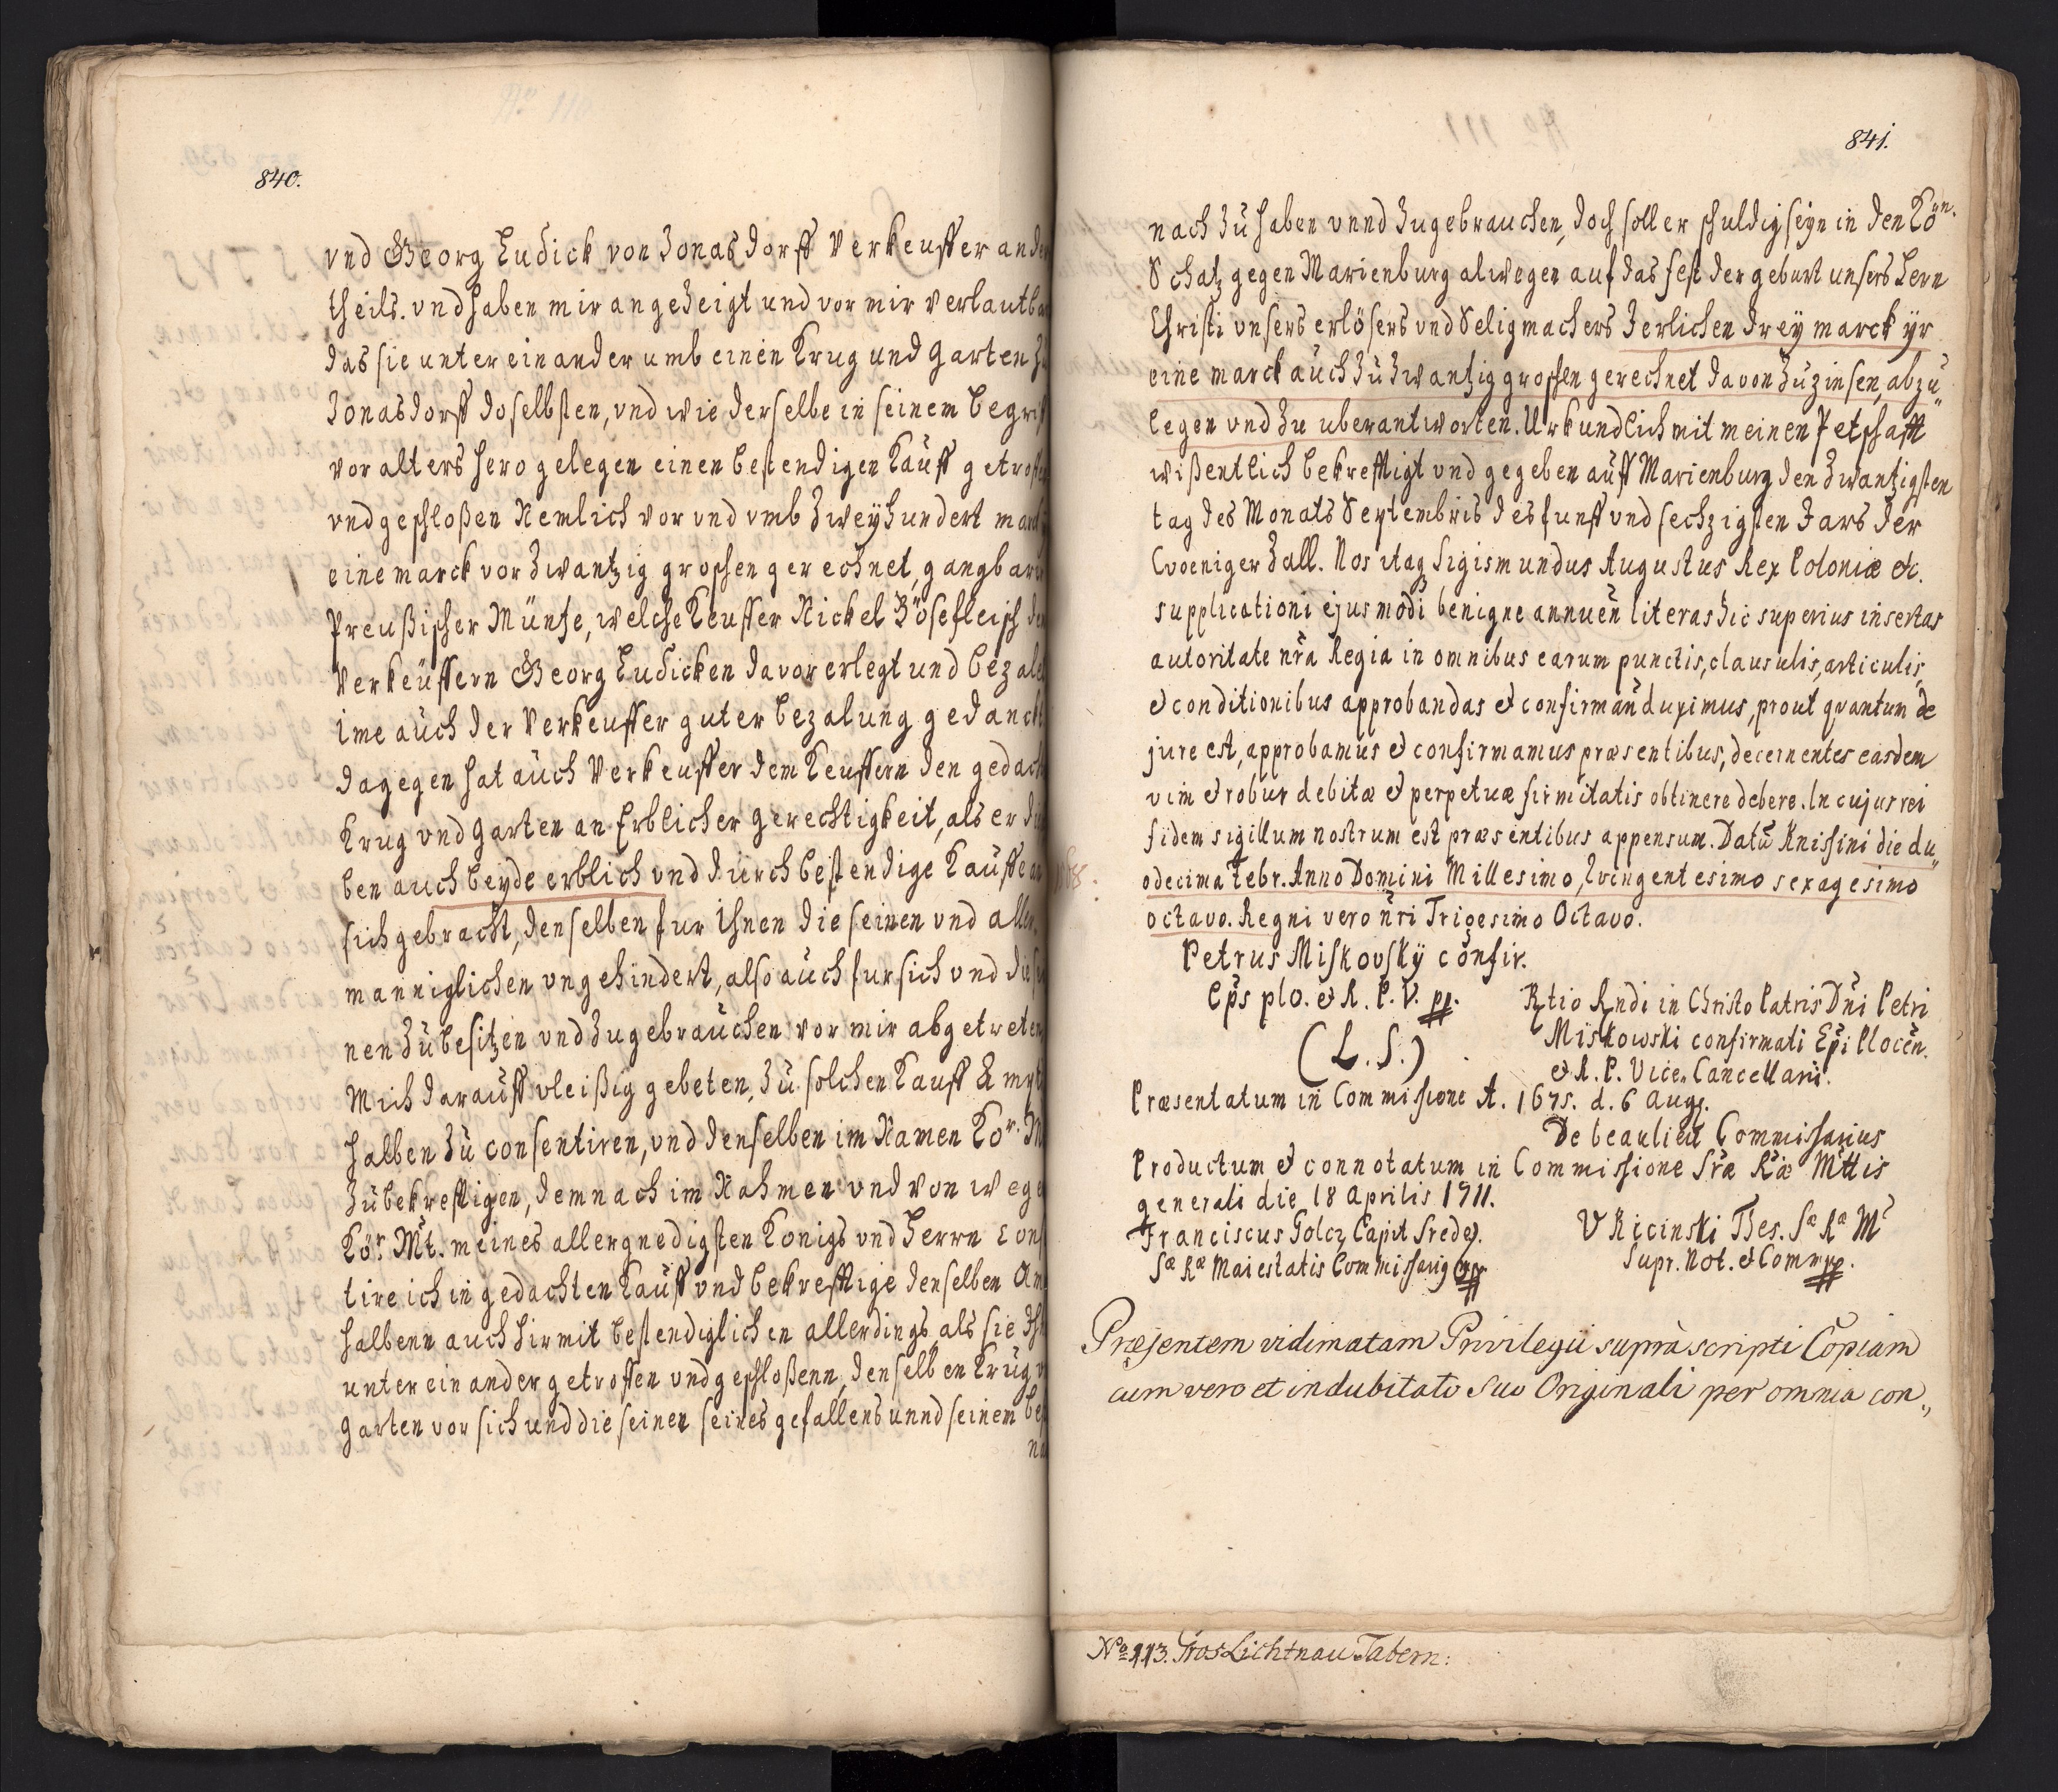 840.
vnd Georg Ludick von Jonasdorff Verkeuffer ander
theils. vnd haben mir angezeigt und vor mir verlautba
das sie unter einander umb einen Krug und Garten zu
Jonasdorff doselbsten, vnd wie derselbe in seinem begriff
vor alters hero gelegen einen bestendigen Kauff getroffen
vnd geschloßen Nemlich vor vnd vmb Zweyhundert marck
eine marck vor Zwantzig groschen gerechnet, gangbarer
Preußischer Müntze, welche Keuffer Nickel Bösefleisch dem
Verkeuffern Georg Ludicken davor erlegt und bezalet
ime auch der Verkeuffer guter bezalung gedanckt
dagegen hat auch Verkeuffer dem Keuffern den gedach
Krug vnd Garten an Erblicher gerechtigkeit, als er die
ben auch beyde erblich vnd durch bestendige Kauffe an
sich gebracht, denselben fur Ihnen die seinen vnd aller
manniglichen ungehindert, also auch fur sich vnd die sei
nen Zubesitzen vnd Zugebrauchen vor mir abgetreten
Mich darauff vleißig gebeten, Zu solchen Kauff Ampt
halben Zu consentiren, vnd denselben im Namen Kör. M
Zubekrefftigen, demnach im Nahmen vnd von wegen
Kör. Mt. meines allergnedigsten Konigs vnd Herrn Cons
tire ich in gedachten Kauff vnd bekrefftige denselben Am
halbenn auch hirmit bestendiglichen allerdings, als sie
unter einander getroffen vnd geschloßenn, denselben Krug v
Garten vor sich und die seinen seines gefallens unnd seinem bes
na
841.
nach Zu haben vnnd Zugebrauchen, doch soll er schuldig seyn in den Kön.
Schatz gegen Marienburg alwegen auf das fest der geburt unsers Hern
Christi vnsers erlösers vnd Seligmachers Jerlichen drey marck yr
eine marck auch Zu Zwantzig groschen gerechnet davon Zuzinsen, abzu„
legen vnd Zu uberantworten. Urkundlich mit meinen Petschafft
wißentlich bekrefftigt vnd gegeben auff Marienburg den Zwantzigsten
tag des Monats Septembris des funff vnd sechzigsten Jars der
weniger Zall. Nos itaq Sigismundus Augustus Rex Poloniæ etc.
supplicationi ejusmodi benigne annuen̄ literas hic superius insertas
autoritate nr̄a Regia in omnibus earum punctis, clausulis, articulis,
et conditionibus approbandas et confirman̄ duximus, prout quantum de
jure est, approbamus et confirmamus præsentibus, decernentes easdem
vim et robur debitæ et perpetuæ firmitatis obtinere debere. In cujus rei
fidem sigillum nostrum est præsentibus appensum. Datū Knissini die du„
odecima Febr. Anno Domini Millesimo, Qvingentesimo sexagesimo
octavo. Regni vero nr̄i Trigesimo Octavo.
Petrus Miskovsky confir.
Eps plo. et R. P. V. pp.
(L. S.)
Rtio Rndi in Christo Patris Dn̄i Petri
Miskowski confirmati Epi Plocen̄.
et R. P. Vice Cancellarii.
Præsentatum in Commissione A. 1675. d. 6 Aug.
De beaulieu Commissarius
Productum et connotatum in Commissione Sræ Ræ Mttis
generali die 18 Aprilis 1711.
Franciscus Golcz Capit Sredz.
Sæ Ræ Maiestatis Commissarig mpp
V Kicinski Thes. Sæ Ræ M
Supr. Not. et Comm pp.
Præsentem vidimatam Privilegii suprà scripti Copiam
cum vero et indubitato suo Originali per omnia con„
No 113. Gros Lichtnau Tabern: